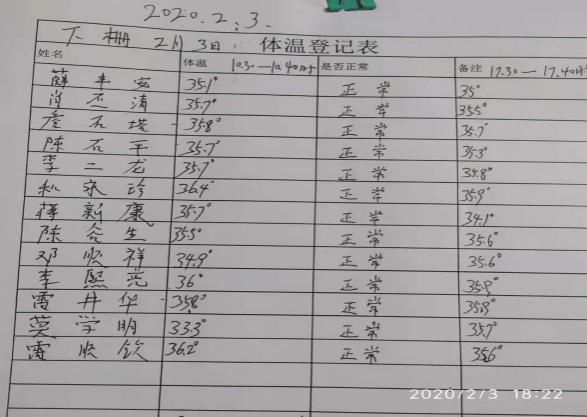 2020.2.3.
下栅 2月3日 体温登记表
姓名 体温 10.30—10.40时 是否正常 备注 17.30—17.40时
薛丰安 35.1° 正常 35°
肖丕清 35.7° 正常 35.5°
詹石塔 35.8° 正常 35.7°
陈石平 35.7° 正常 35.3°
李二龙 35.7° 正常 34.8°
永珍 36.4° 正常 35.9°
蒋新康 35.7° 正常 34.1°
陈谷生 35.5° 正常 35.6°
邓顺祥 34.9° 正常 35.6°
李熙亮 36° 正常 35.9°
雷井华 35.8° 正常 35.9°
莫学明 33.3° 正常 35.7°
雷顺钦 36.2° 正常 35.6°
2020/2/3 18:22